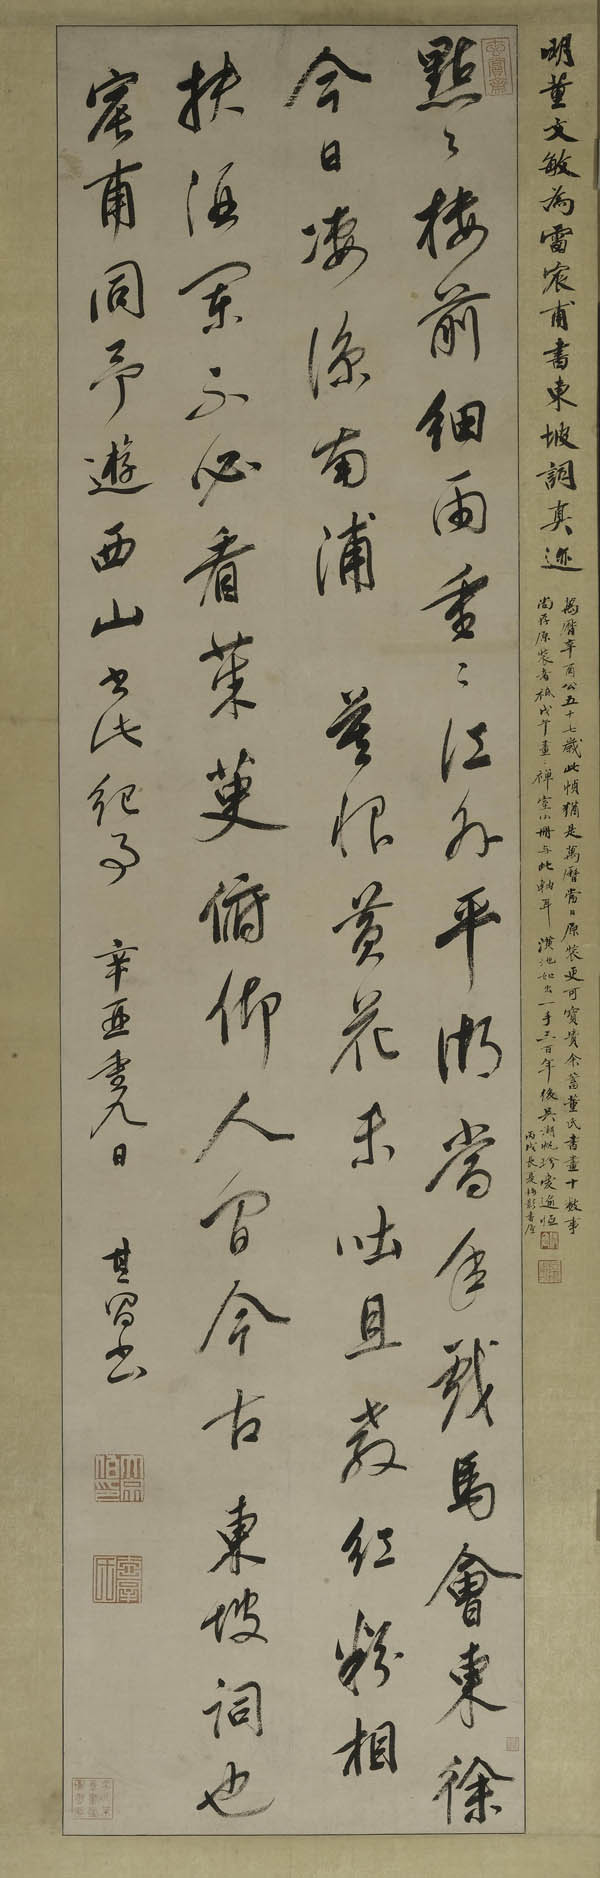 明董文敏為雷宸甫書東坡詞真迹
萬曆辛酉公五十七歲此幀猶是萬曆當日原裝更可寶貴余蓄董氏書畫十數事
尚存原裝者祇戊午畫禪室小冊與此軸耳 潢池如出一手三百年後吳湖帆珍襲逾恆
丙戌長夏梅影書屋
點〻樓前細雨重〻江外平湖當年戲馬會東徐
今日凄涼南浦 莫恨黃花未吐且教紅粉相
扶酒闌不必看茱萸俯仰人間今古 東坡詞也
宸甫同予遊西山書此紀事 辛酉重九日 其昌書
玄賞齋